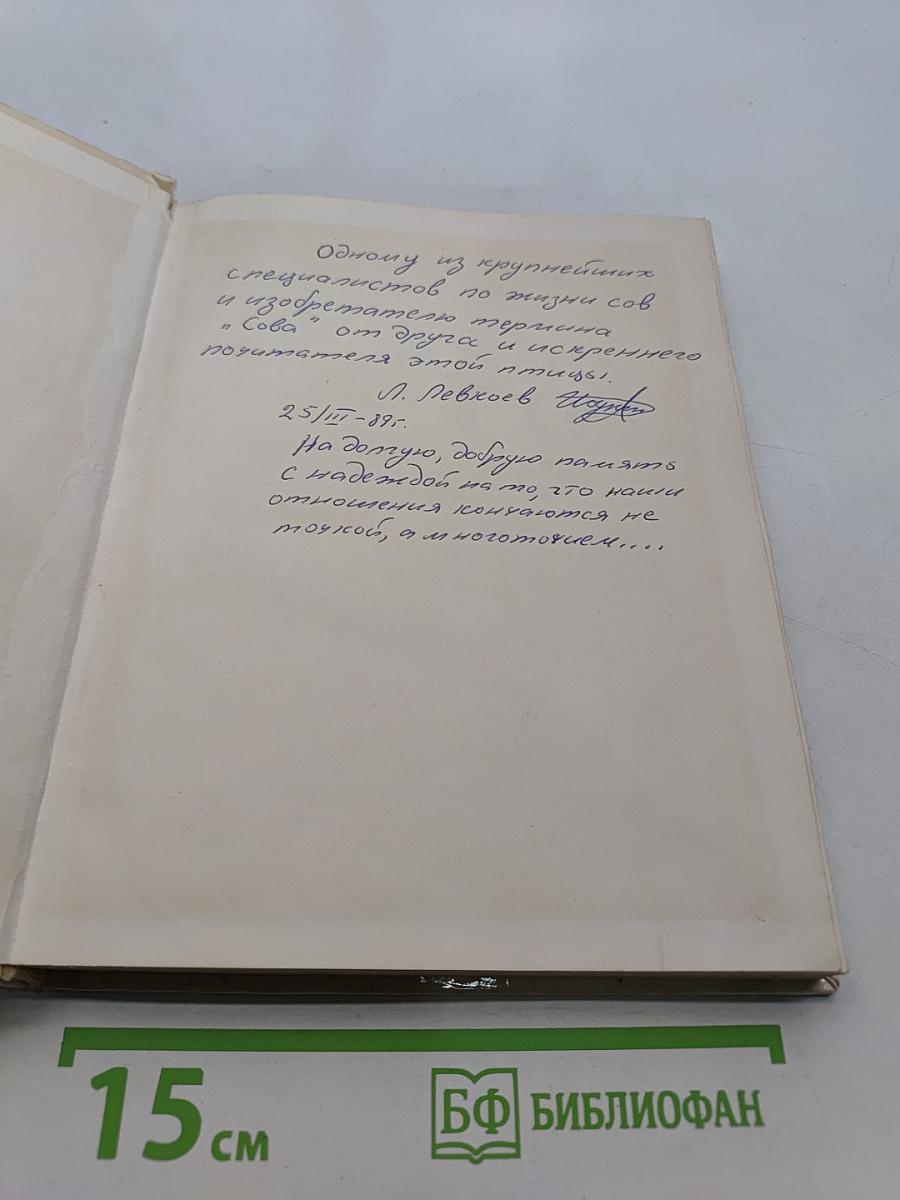 Одному из крупнейших
специалистов по жизни сов
и изобретателю термина
„Сова" от друга и искреннего
почитателя этой птицы.
Л. Левкоев
25/III-89г.
На долгую, добрую память
с надеждой на то, что наши
отношения кончаются не
точкой, а многоточием....
15 см
БФ БИБЛИОФАН